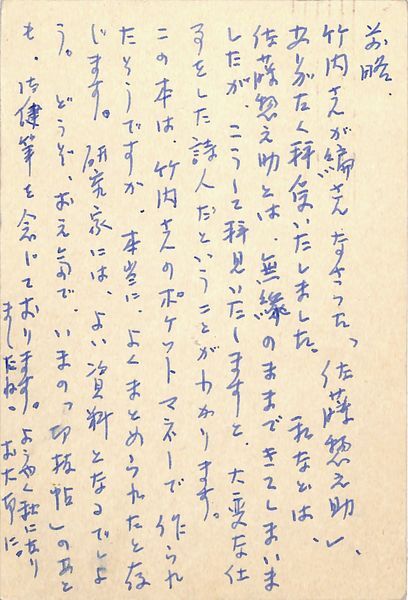 前略、
竹内さんが編さんなさった、「佐藤惣之助」、
ありがたく拝受いたしました。私などは、
佐藤惣之助とは、無縁のままできてしまいま
したが、こうして拝見いたしますと、大変な仕
事をした詩人だということがわかります。
この本は、竹内さんのポケットマネーで作られ
たそうですが、本当に、よくまとめられたと存
じます。研究家には、よい資料となるでしょ
う。どうぞ、お元気で、いまの「切抜帖」のあと
も、御健筆を念じております。ようやく秋になり
ましたね、お大事に。